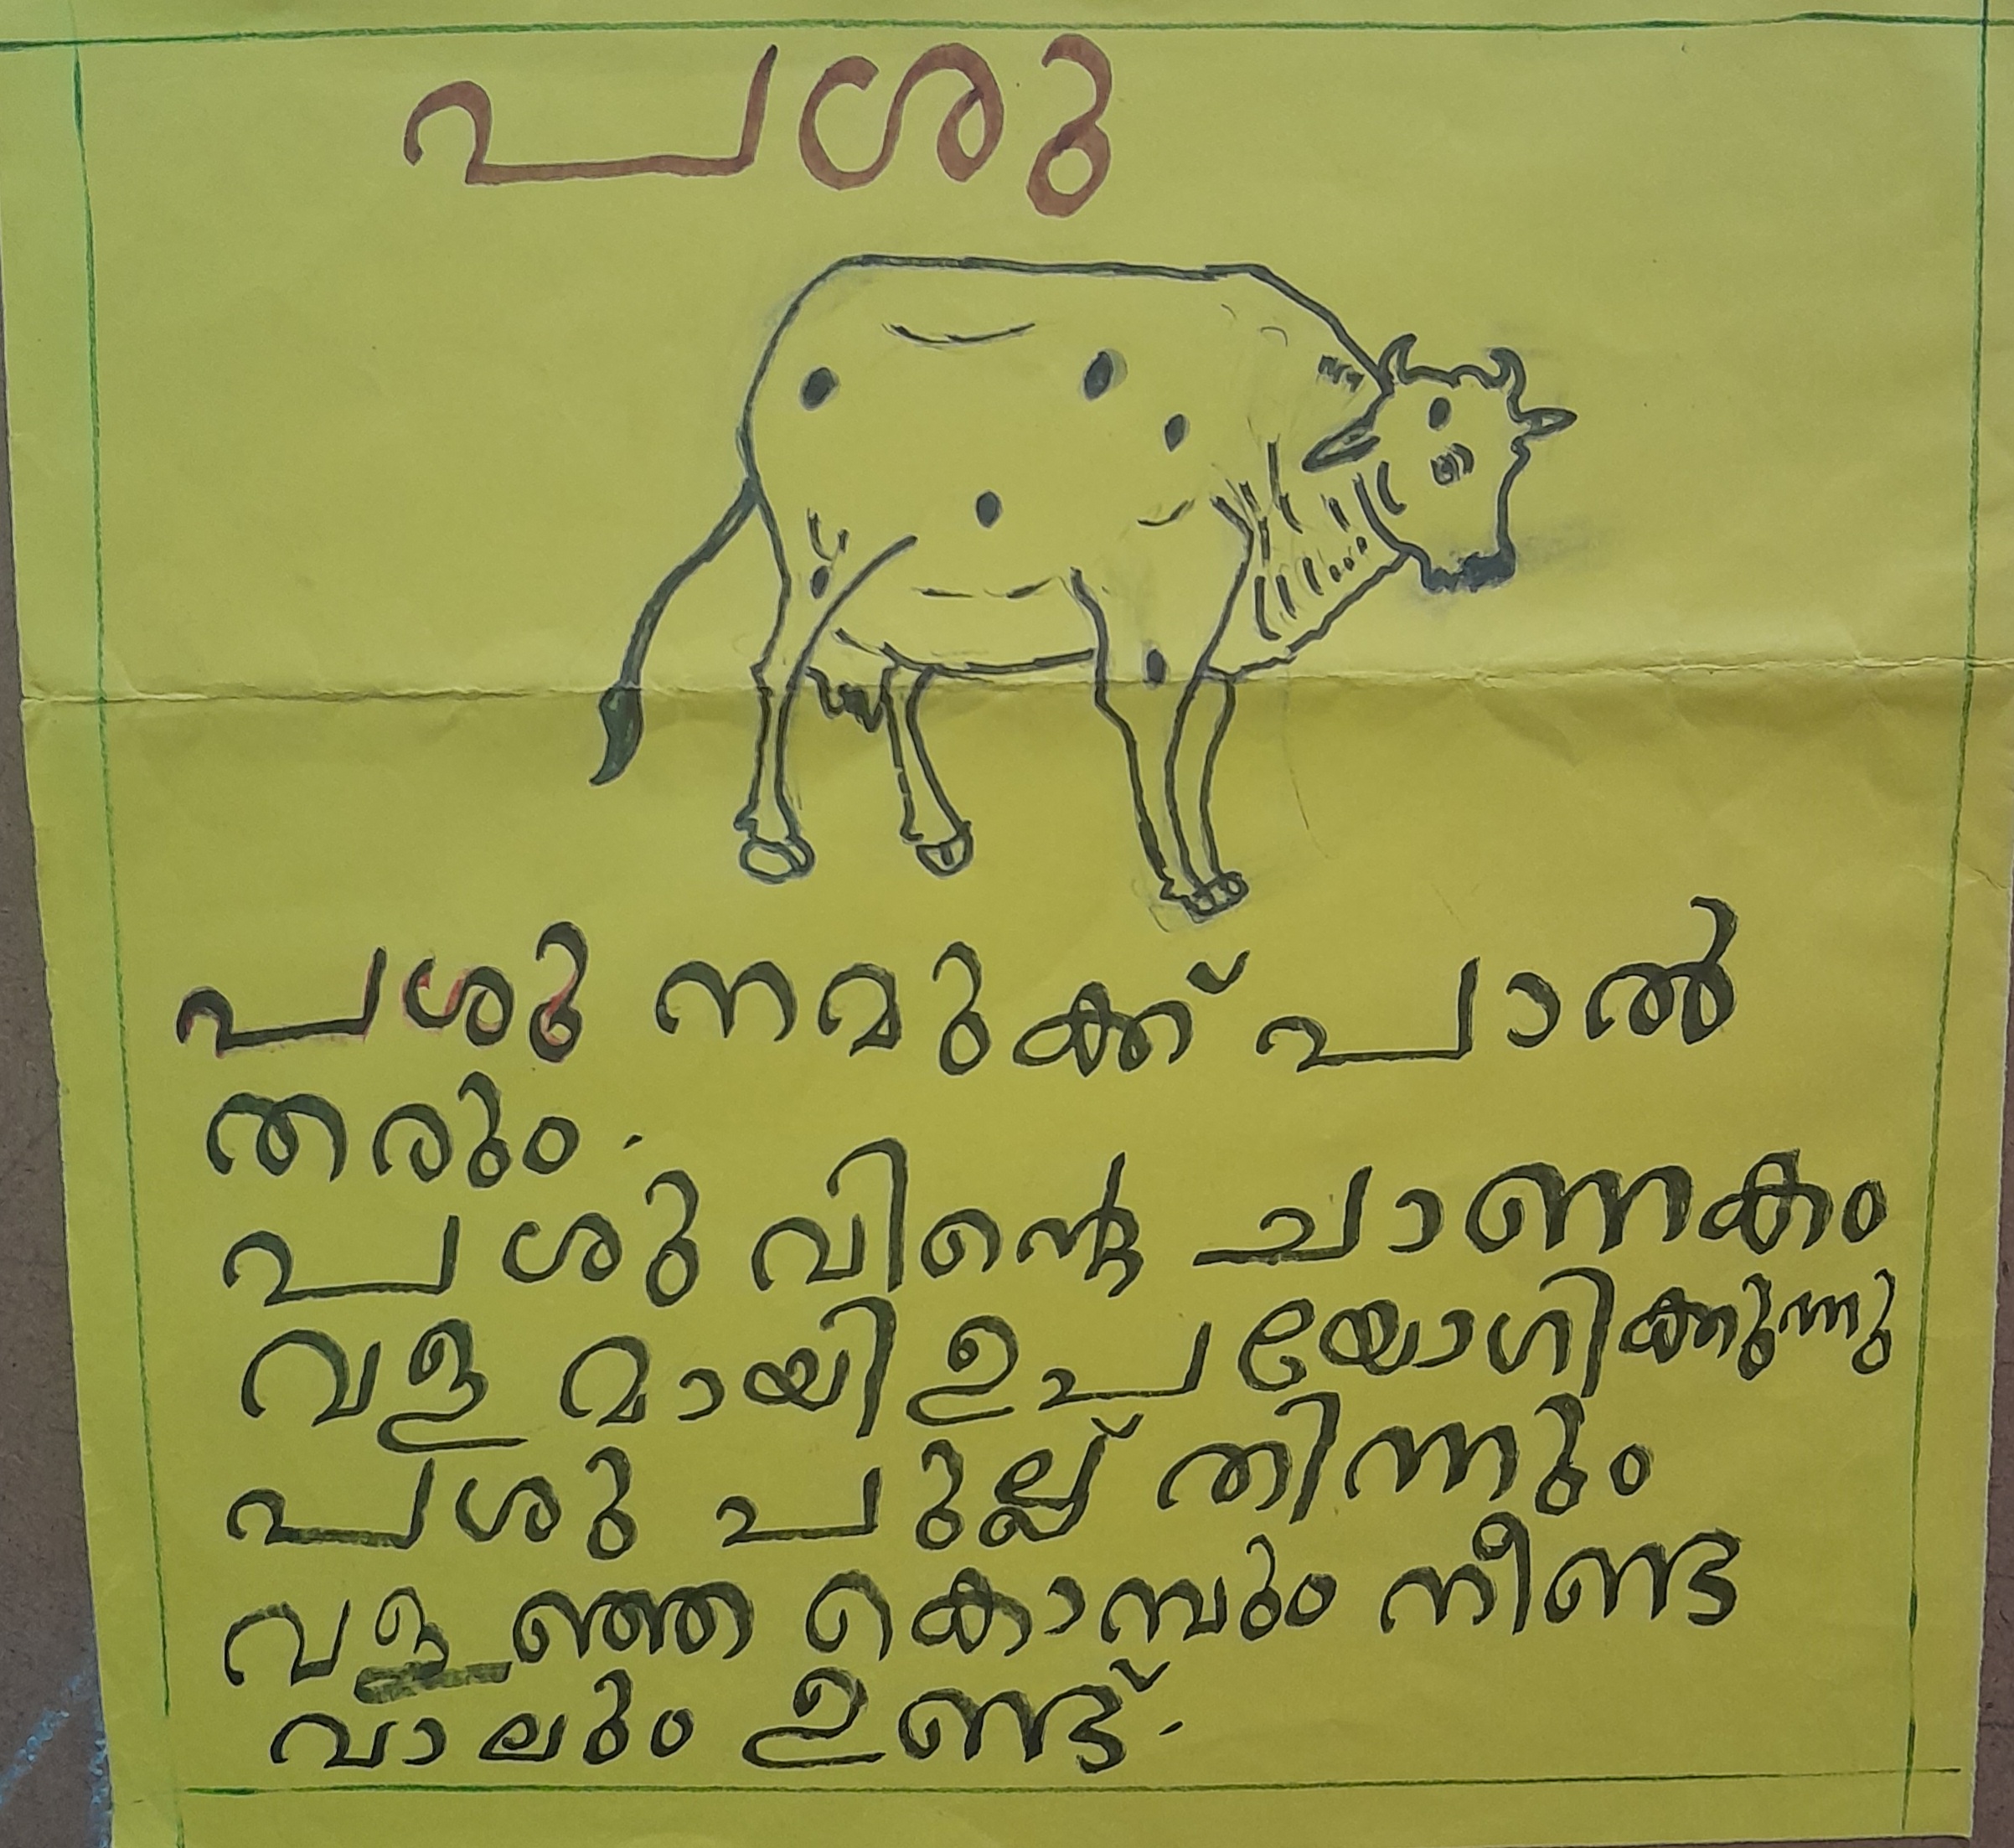 പശു
പശു നമുക്ക് പാൽ
തരും.
പശുവിന്റെ ചാണകം
വളമായി ഉപയോഗിക്കുന്നു
പശു പുല്ല് തിന്നും
വളഞ്ഞ കൊമ്പും നീണ്ട
വാലും ഉണ്ട്.